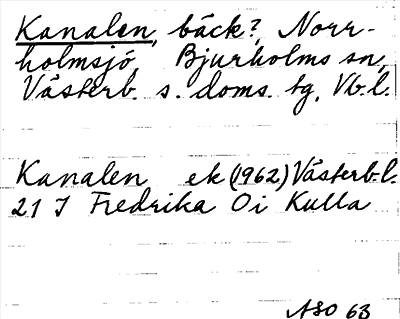 Kanalen, bäck?, Norr-
holmsjö, Bjurholms sn,
Västerb. s. doms. tg, Vb.l.
Kanalen ek (1962) Västerb.l.
21 J Fredrika Oi Kulla
ASO 63